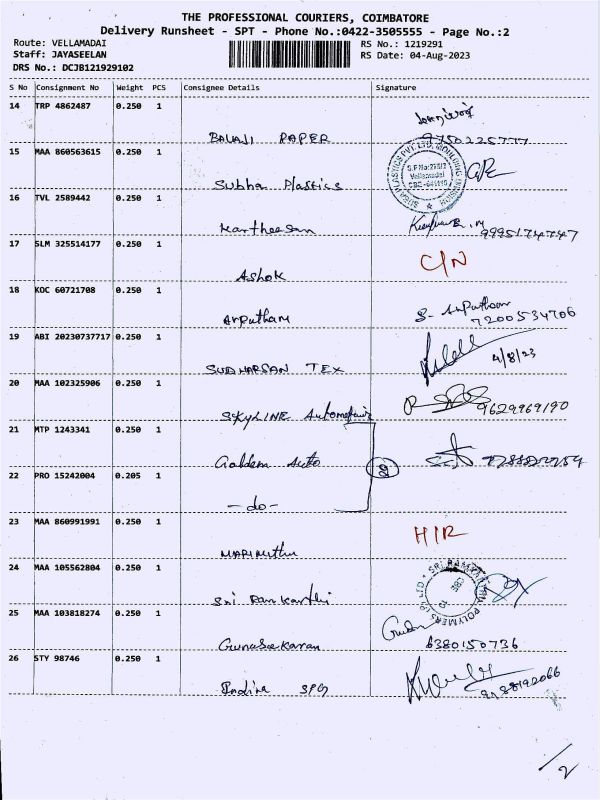 THE PROFESSIONAL COURIERS, COIMBATORE
Delivery Runsheet - SPT - Phone No.:0422-3505555 - Page No.:2
Route: VELLAMADAI RS No.: 1219291
Staff: JAYASEELAN RS Date: 04-Aug-2023
DRS No.: DCJB121929102
S No Consignment No Weight PCS Consignee Details Signature
14 TRP 4862487 0.250 1
BALAJI PAPER 9750225777
15 MAA 860563615 0.250 1
Subha Plastics
16 TVL 2589442 0.250 1
Kartheesan 9995174747
17 SLM 325514177 0.250 1 C/N
Ashok
18 KOC 60721708 0.250 1
Arputham 7200534706
19 ABI 20230737717 0.250 1
SUDHARSAN TEX 4/8/23
20 MAA 102325906 0.250 1
SKYLINE 9629969190
21 MTP 1243341 0.250 1
Golden Auto 2
22 PRO 15242004 0.205 1
-do-
23 MAA 860991991 0.250 1 H/R
MARIMuthu
24 MAA 105562804 0.250 1
Sri Ram Karthi
25 MAA 103818274 0.250 1
Gunasekaran 6380150736
26 STY 98746 0.250 1
Indira
/2